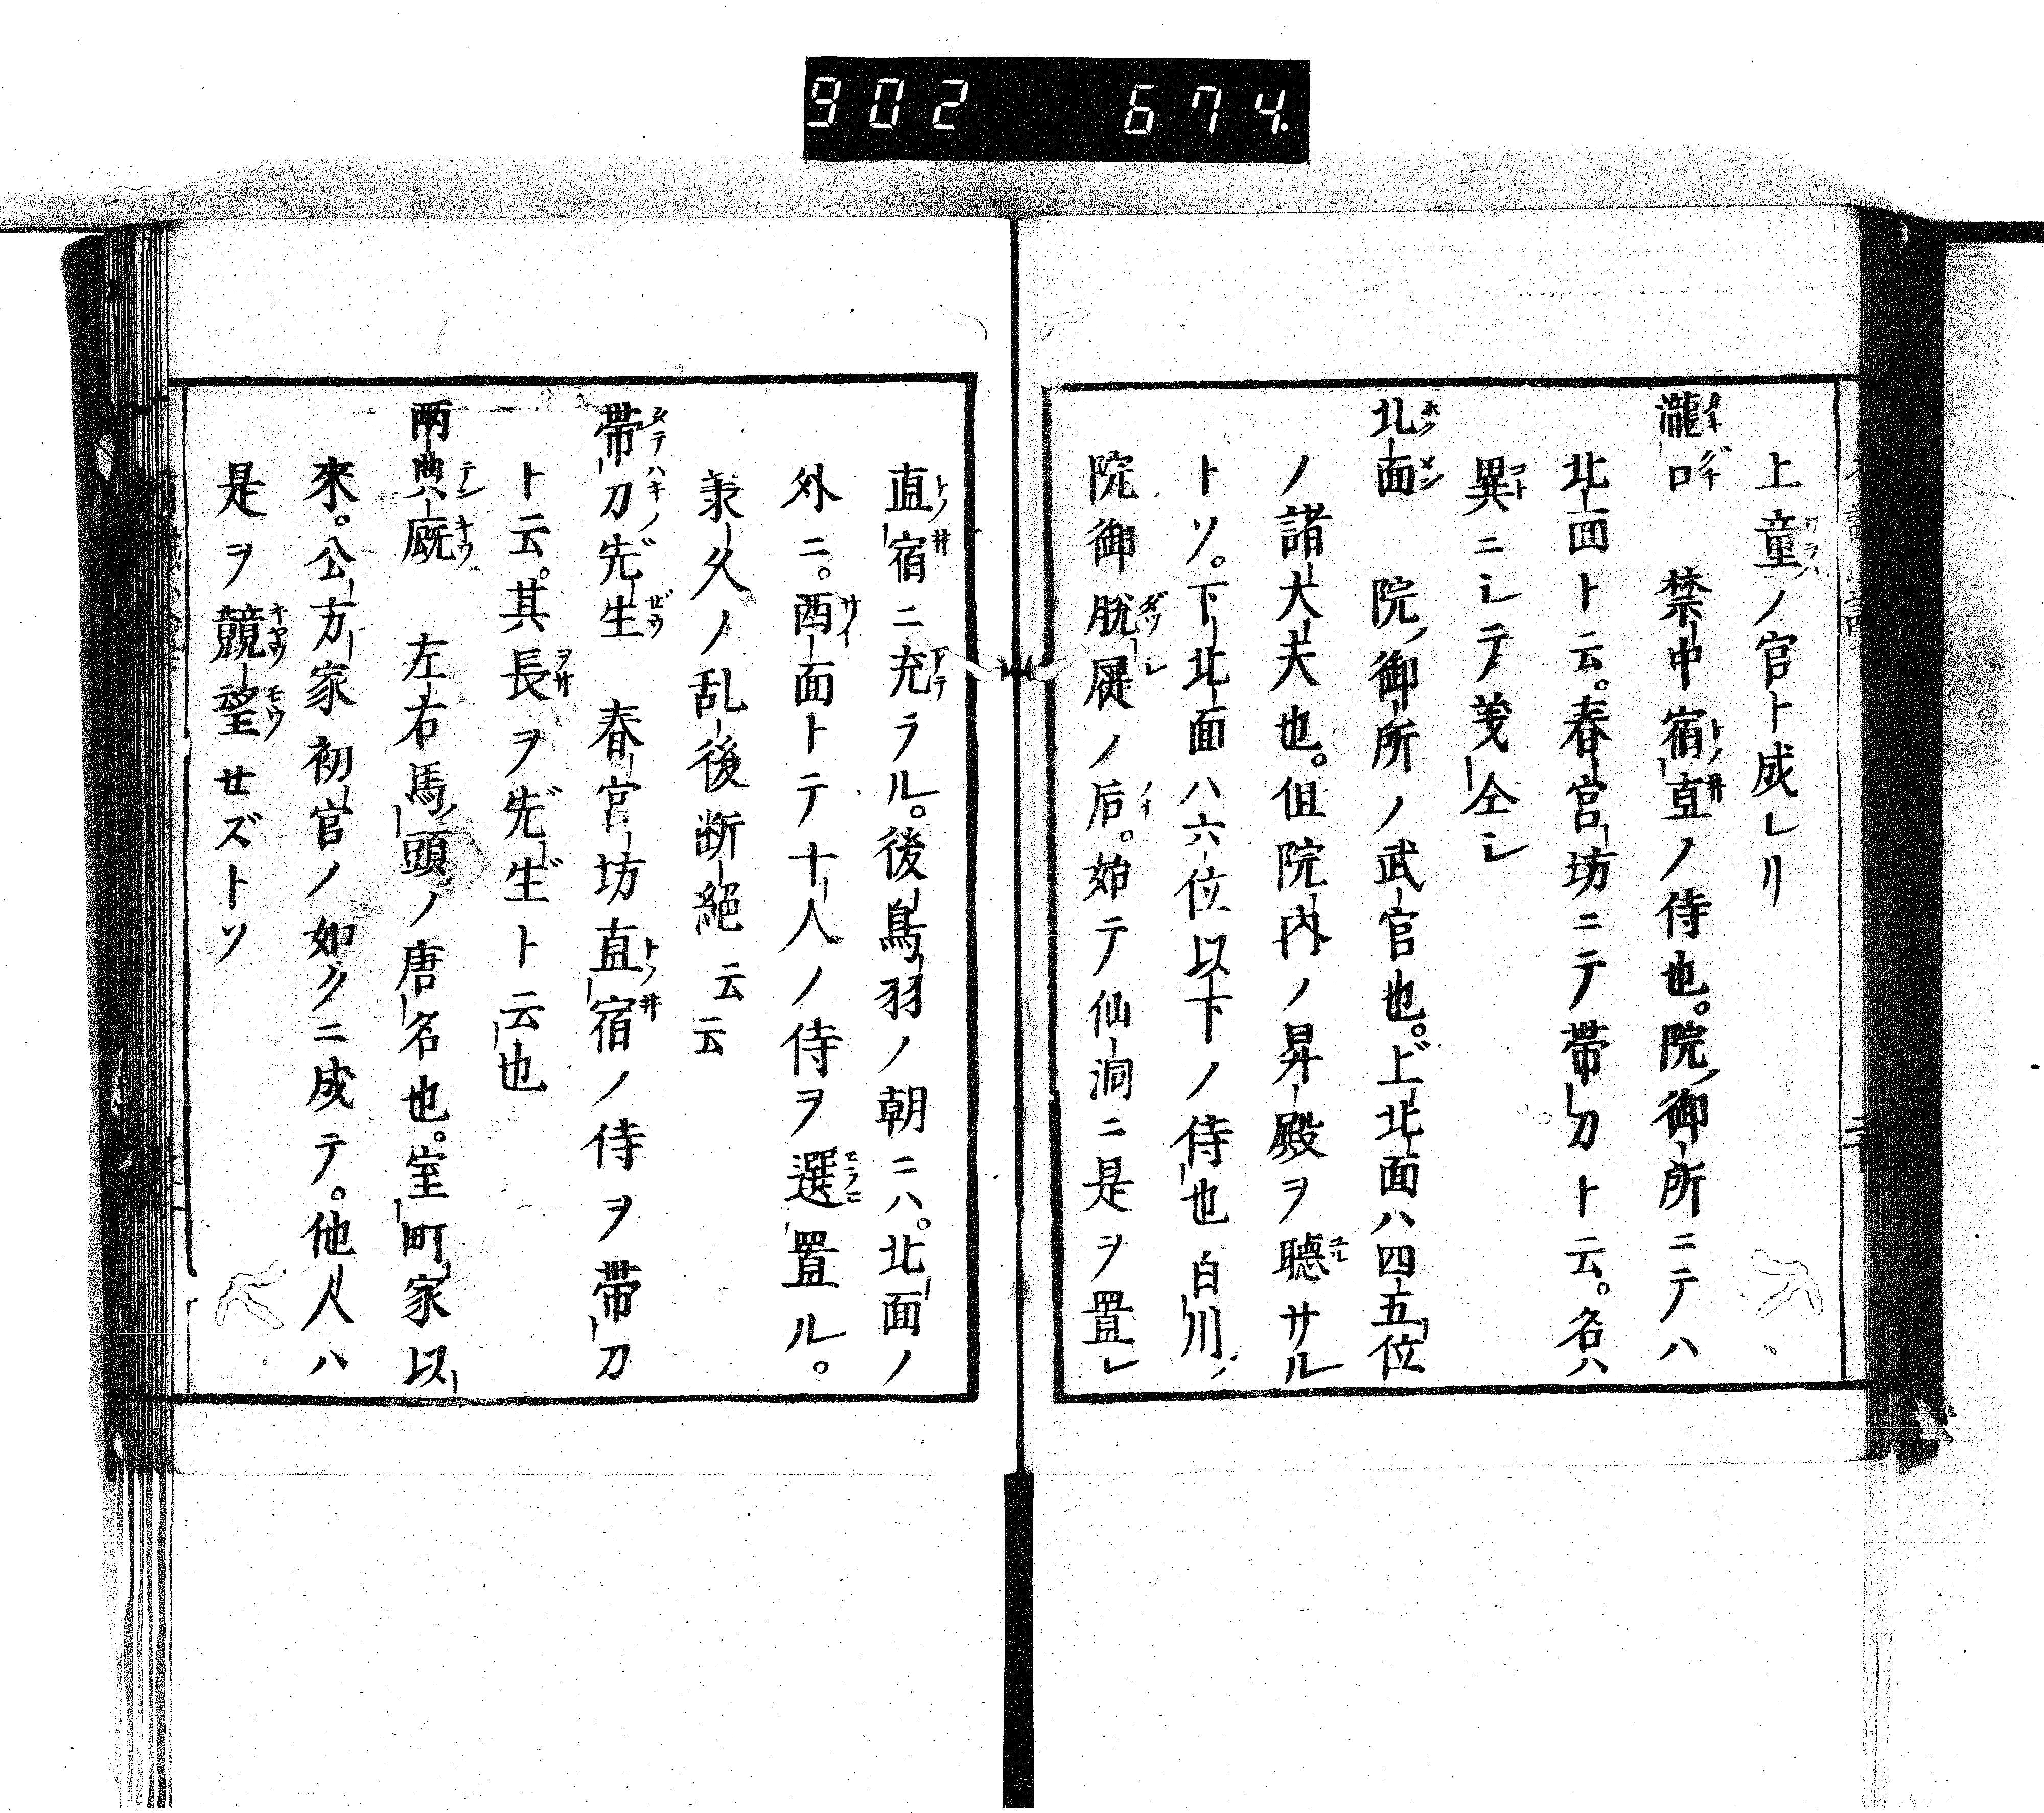 902 674
上童ノ官ト成レリ
瀧口 禁中宿直ノ侍也。院御所ニテハ
北面ト云。春宮坊ニテ帯刀ト云。名ハ
異ニシテ義仝シ
北面 院ノ御所ノ武官也。上北面ハ四五位
ノ諸大夫也。但院内ノ昇殿ヲ聴サル
トソ。下北面ハ六位以下ノ侍也白川ノ
院御脱屣ノ后。始テ仙洞ニ是ヲ置レ
直宿ニ充ラル。後鳥羽ノ朝ニハ。北面ノ
外ニ。西面トテ十人ノ侍ヲ選置ル。
兼久ノ乱後断絶云云
帯刀先生 春宮坊直宿ノ侍ヲ帯刀
ト云。其長ヲ先生ト云也
両典厩 左右馬頭ノ唐名也。室町家以
來。公方家初官ノ如クニ成テ。他人ハ
是ヲ競望セズトソ